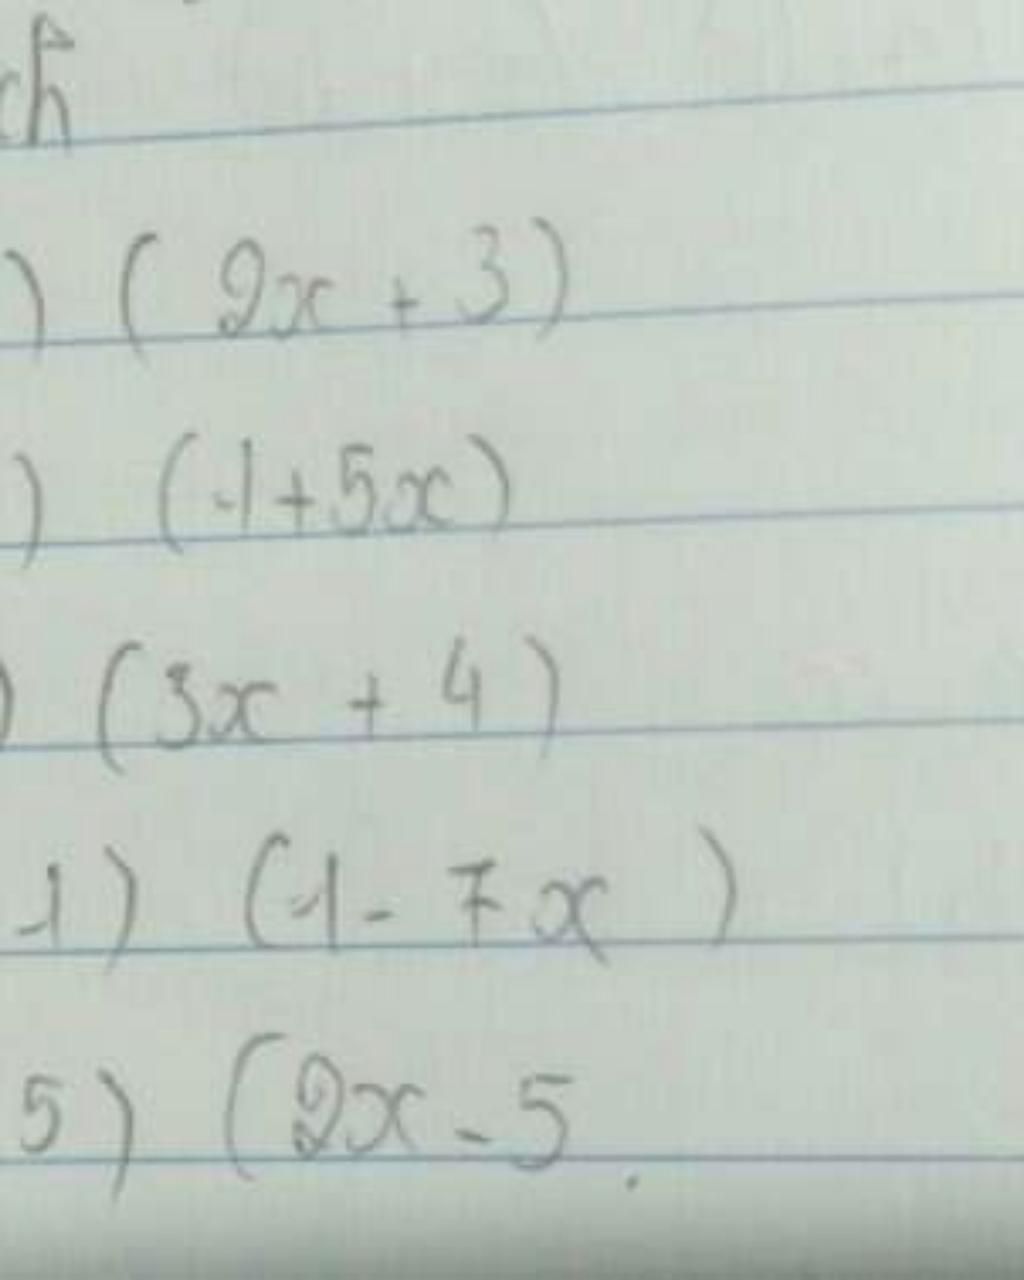 ) (2x + 3)
) (1+5x)
) (3x + 4)
-1) (1 - 7x )
5) (2x - 5